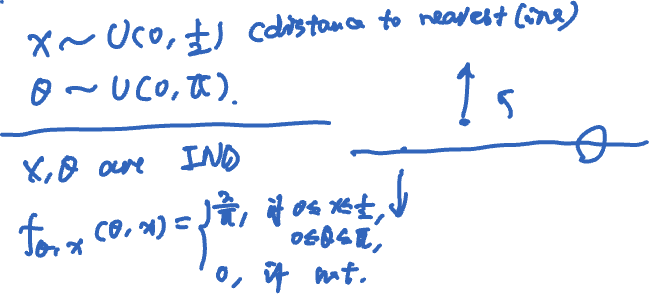 x ~ U(0, 1/2) (distance to nearest line)
θ ~ U(0, π).
x, θ are IND
f_{θ,x}(θ, x) = { 2/π, if 0 ≤ x ≤ 1/2,
0 ≤ θ ≤ π,
0, if not.